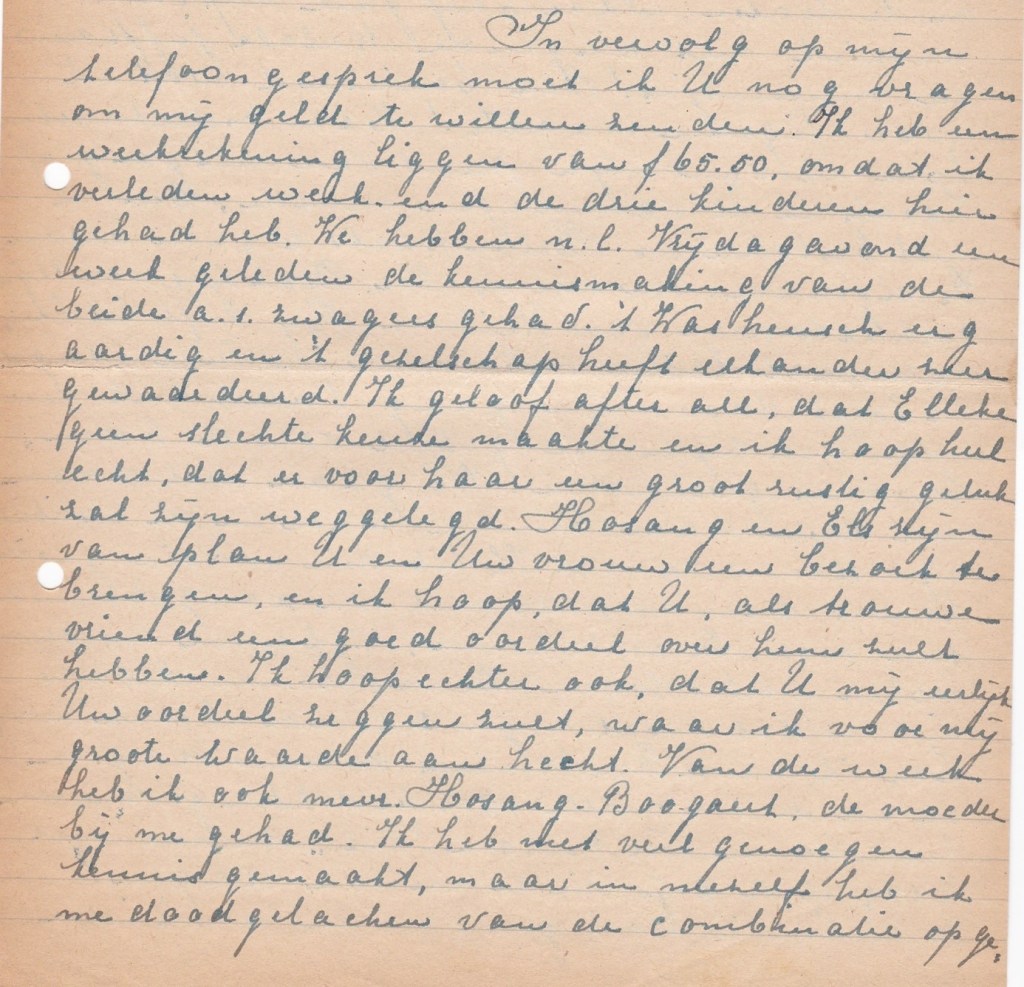 In vervolg op mijn
telefoongesprek moet ik U nog vragen
om mij geld te willen zenden. Ik heb een
weekrekening liggen van f 65.50, omdat ik
verleden week-end de drie kinderen hier
gehad heb. We hebben n.l. Vrijdagavond een
week geleden de kennismaking van de
beide a.s. zwagers gehad. 't Was heusch erg
aardig en 't gezelschap heeft elkander zeer
gewaardeerd. Ik geloof after all, dat Elleke
geen slechte keuze maakte en ik hoop heel
echt, dat er voor haar een groot rustig geluk
zal zijn weggelegd. Hosang en Els zijn
van plan U en Uw vrouw een bezoek te
brengen, en ik hoop, dat U, als trouwe
vriend een goed oordeel over hem zult
hebben. Ik hoop echter ook, dat U mij eerlijk
Uw oordeel zeggen zult, waar ik voor mij
groote waarde aan hecht. Van de week
heb ik ook mevr. Hosang-Boogaert, de moeder
bij me gehad. Ik heb met veel genoegen
kennis gemaakt, maar in mezelf heb ik
me doodgelachen van de combinatie op ge=